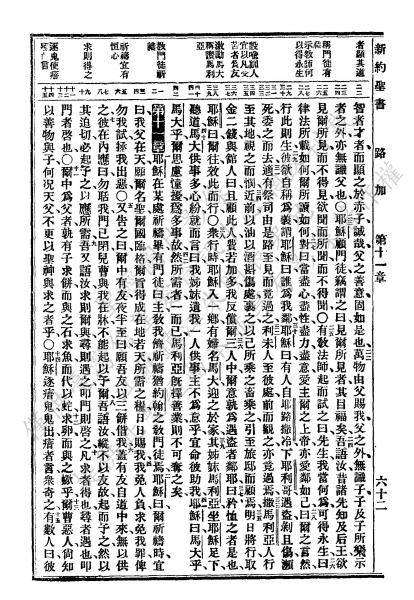 新約聖書 路加 第十一章 六十二
者顯其道
稱門徒有福
示教法師何以得永生
設喻訓人宜以凡受苦者爲友
激勵馬大稱讚馬利亞
教門徒祈禱
祈禱宜有恒
求則得之
逐鬼使瘖者言
智者才者而顯之於赤子誠哉父之善意固如是也萬物由父賜我父之外無識子子及子所樂示
者之外亦無識父也○耶穌顧門徒竊謂之曰見爾所見者其目福矣吾語汝昔諸先知及后王欲
見爾所見而不得見欲聞爾所聞而不得聞○有教法師起而試之曰先生我當何爲可得永生曰
律法所載如何爾所讀如何對曰當盡心盡性盡力盡意愛主爾之上帝亦愛鄰如己曰爾之言然
行此則生彼欲自稱爲義謂耶穌曰誰爲我鄰耶穌曰有人自耶路撒冷下耶利哥遇盜剝且傷瀕
死委之而去適有祭司由是路至見而竟過之利未人至彼處前而觀之亦竟過焉撒馬利亞人行
至其地視之而憫近前以油以酒斟傷處裹之以己所乘之畜乘之引至旅邸而顧焉明日將行取
金二錢與館人曰且顧此人費若加多我反償爾三人中爾意孰爲遇盜者鄰耶曰矜恤之者是也
耶穌曰爾往效此而行○衆行時耶穌入一鄉有婦名馬大迎之於家其姊妹馬利亞坐耶穌足下
聽道馬大供事多心紛就而言曰我姊妹遺我一人供事主不爲意乎宜命彼助我耶穌曰馬大
馬大乎爾思慮憧擾爲多事故然所需者一而已馬利亞旣擇善業則不可奪之矣
第十一章 耶穌在某處祈禱畢有門徒曰主教我儕祈禱猶約翰之教門徒焉耶穌曰爾祈禱時宜
曰我父在天願爾名聖爾國臨格爾旨得成在地若天所需之糧日日賜我我免人負求免我罪俾
勿我試拯我出惡○又告之曰爾中有友夜半至曰願吾友以三餅借我蓋有友自道中來無以供
之彼在內應曰勿瑣我門已閉兒曹與我在牀不能起以予爾吾語汝縱不以友故起而予之然以
其迫切必起予之以應所需吾又語汝求則爾與尋則遇之叩門則啓之凡求者得也尋者遇也叩
門者啓也○爾中爲父者孰有子求餅而與之石求魚而代以蛇求卵而與之蠍乎爾曹惡人尚知
以善物與子何況天父不更以聖神與求之者乎○耶穌逐瘖鬼鬼出瘖者言衆奇之有數人曰彼